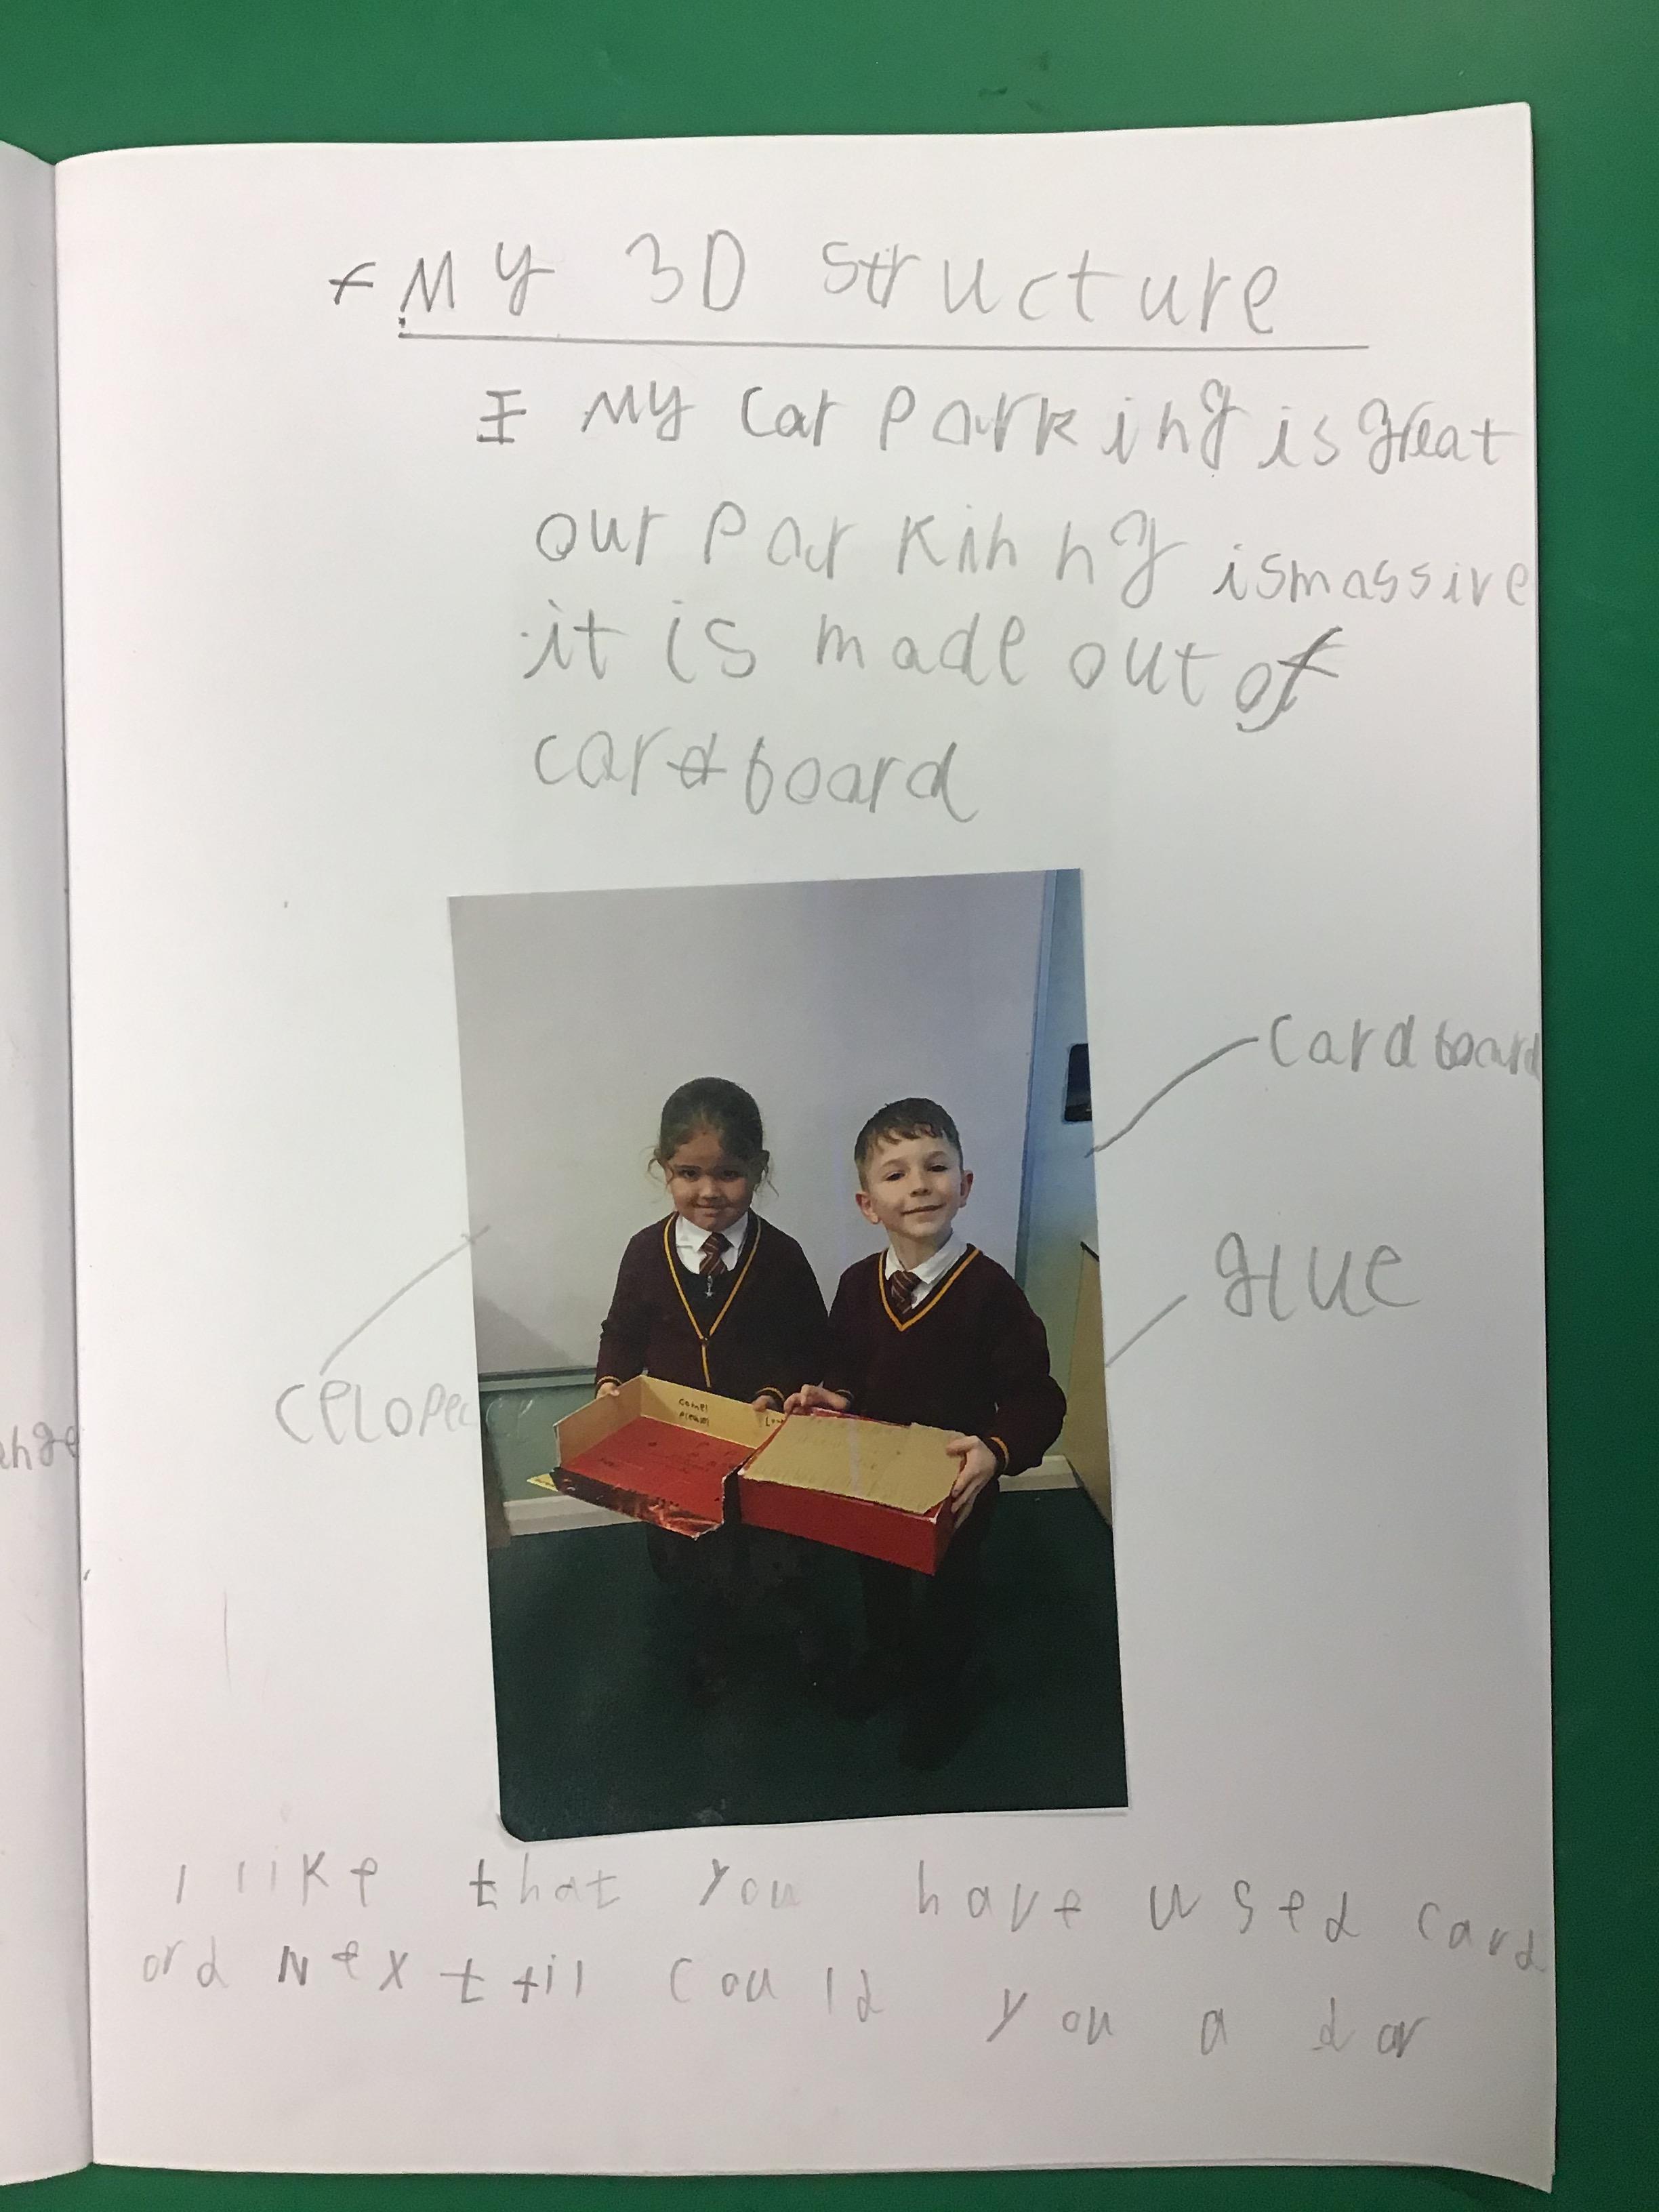 My 3D structure
I my car parking is great
our parkinng is massive
it is made out of
cardboard
cardboard
glue
celopec
come!
please
I like that you have used card
ord Next til could you a dor